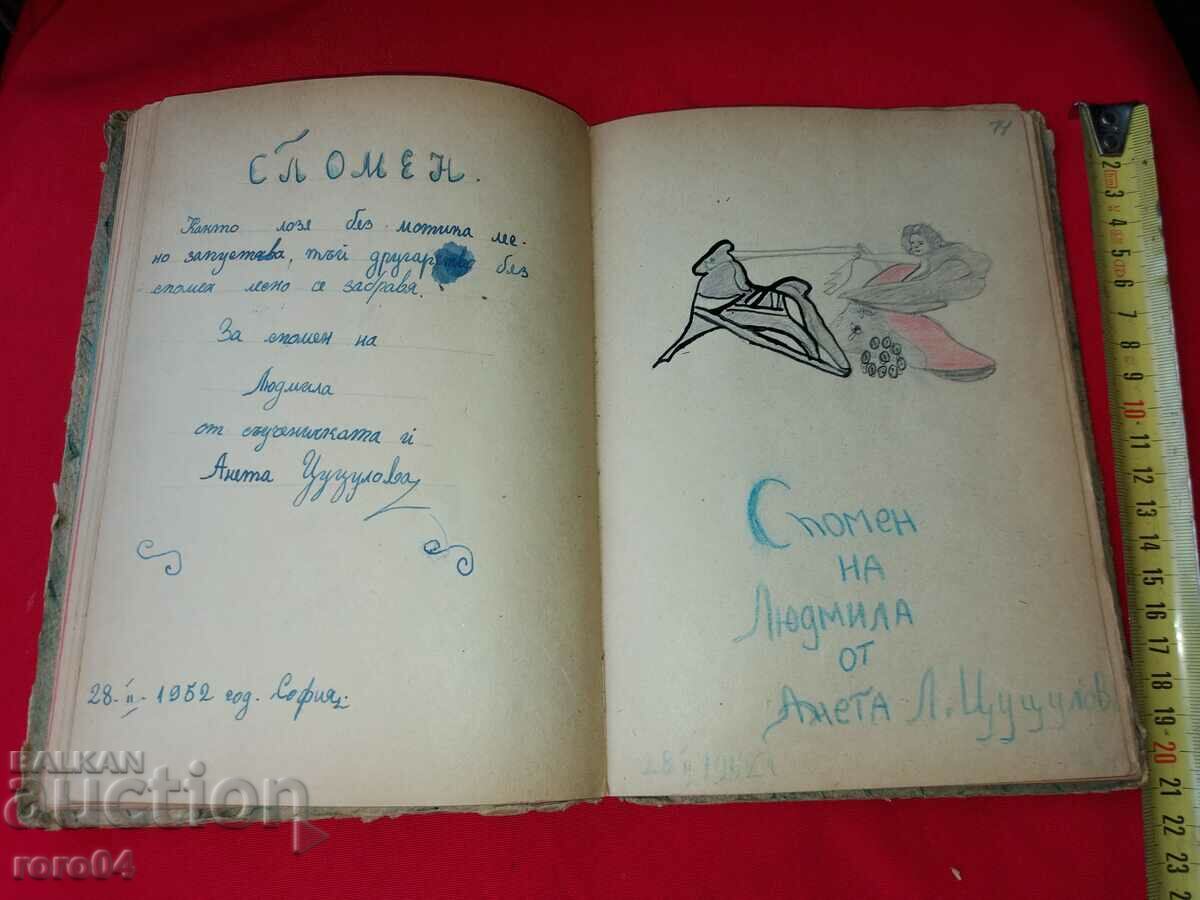 СПОМЕН.
Както лозя без мотика ле-
но запустява, тъй другар без
спомен лено се забравя.
За спомен на
Людмила
от съученичката ѝ
Анета Цуцулова
28-II-1952 год. София
14
Спомен
НА
Людмила
от
Анета Л. Цуцулов
28 II 1952
BALKAN
auction
roro04
2 3 4 5 6 7 8 9 10 11 12 13 14 15 16 17 18 19 20 21 22 23